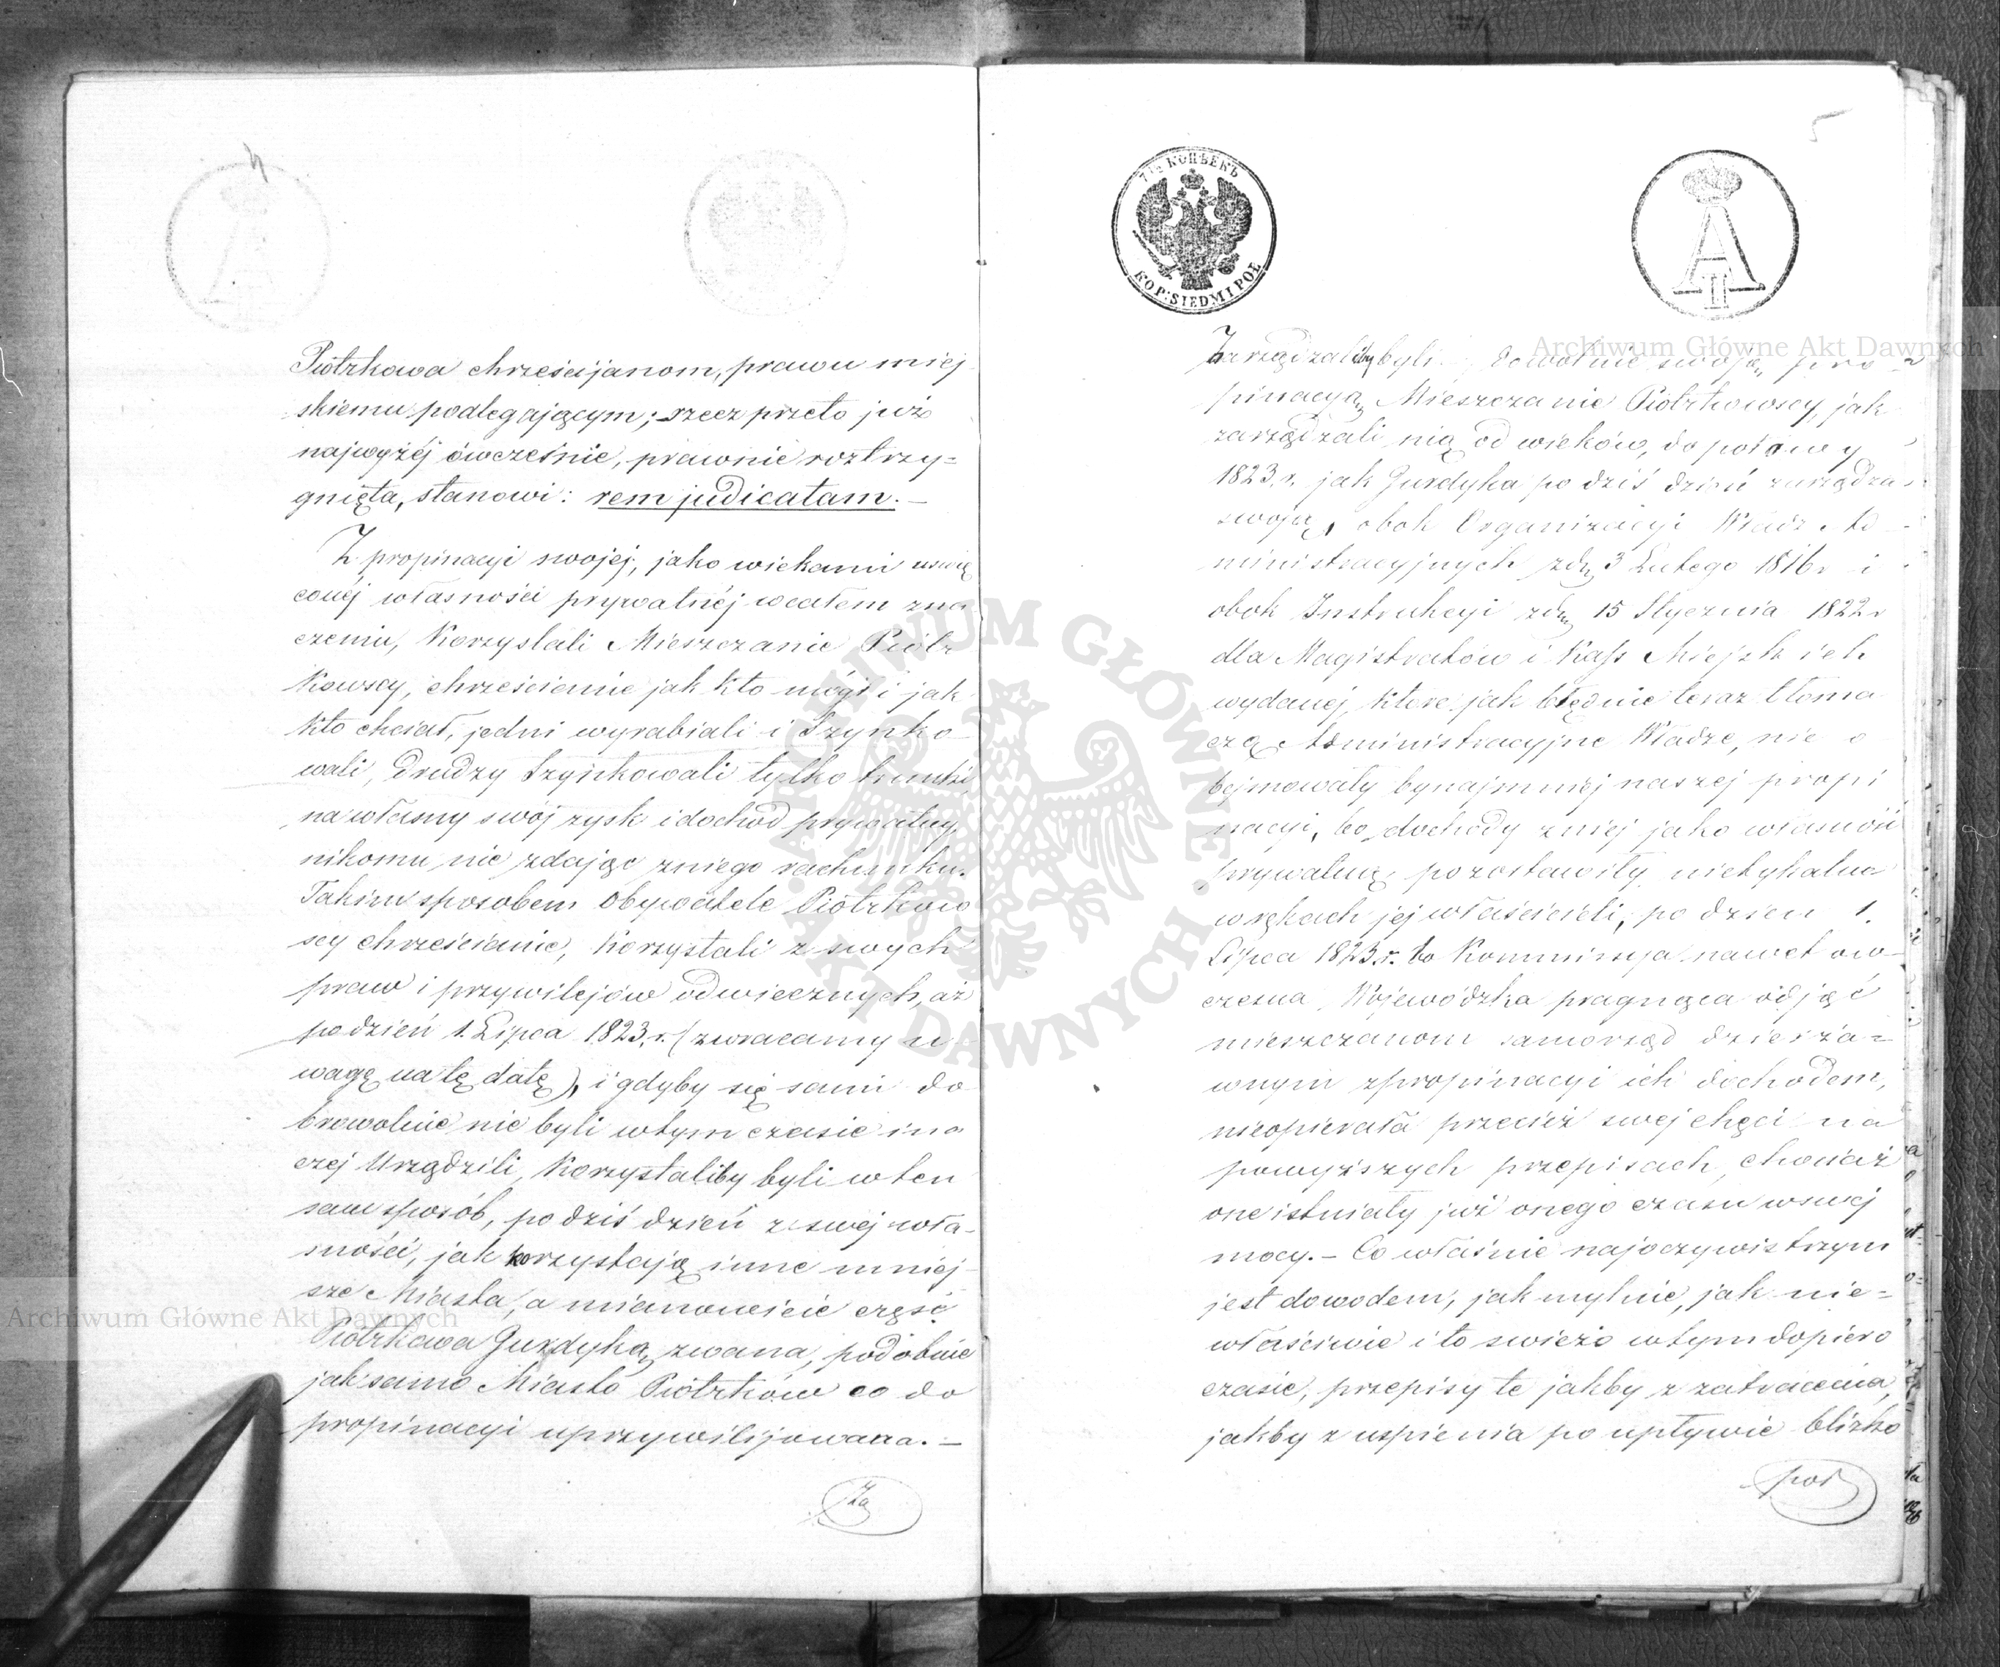 4
Piotrkowa chrześcijanom, prawu miej
skiemu podlegającym; rzecz przeto już
najwyżéj ówcześnie, prawnie roztrzy-
gnięta, stanowi: rem judicatam. —
Z propinacyi swojej, jako wiekami uświę
conéj własności prywatnéj wcałem zna
czeniu, Korzystali Mieszczanie Piotr
kowscy, chrześcianie jak kto mógł i jak
kto chciał, jedni wyrabiali i Szynko-
wali, drudzy Szynkowali tylko trunki,
na własny swój zysk i dochód prywatny,
nikomu nie zdając zniego rachunku.
Takim sposobem Obywatele Piotrkow
scy chrześcianie, Korzystali z swych
praw i przywilejów odwiecznych, aż
po dzień 1. Lipca 1823. r. (zwracamy u
wagę na tę datę), i gdyby się sami do
browolnie nie byli wtym czasie ina
czej Urządzili, Korzystaliby byli w ten
sam sposób, po dziś dzień z swej wła-
sności, jak korzystają inne mniej
sze Miasta, a mianowicie część
Piotrkowa Gurdyką zwana, podobnie
jak samo Miasto Piotrków co do
propinacyi uprzywilijowana. —
Za
5
7½ КОПѢЕКЪ
KOP: SIEDM I POŁ
A II
Zarządzaliby byli dowolnie swoją pro-
pinacyą Mieszczanie Piotrkowscy, jak
zarządzali nią od wieków, do połowy
1823. r. jak Gurdyka po dziś dzień zarządza
swoją, obok Organizacyi Władz Ad-
ministracyjnych zdn 3 Lutego 1816 r i
obok Instrukcyi zdn 15 Stycznia 1822 r
dla Magistratów i Kass Miejskich
wydanej, które jak błędnie teraz tłoma
czą Administracyjne Władze, nie o
bejmowały bynajmniej naszej propi
nacyi, bo dochody z niej jako własność
prywatną, pozostawiły nietykalną
w rękach jej właścicieli, po dzień 1.
Lipca 1823. r. bo Kommissja nawet ów-
czesna Wojewódzka pragnąca odjąć
mieszczanom samorząd dzierża-
wnym zpropinacyi ich dochodem,
nieopierała przecież swej chęci na
powyższych przepisach, chociaż
one istniały już onego czasu wswej
mocy. — Co właśnie najoczywistrzym
jest dowodem, jak mylnie, jak nie-
właściwie i to swieżo wtym dopiero
czasie, przepisy te jakby z zatracenia,
jakby z uspienia po upływie blizko
poł
Archiwum Główne Akt Dawnych
Archiwum Główne Akt Dawnych
ARCHIWUM GŁÓWNE AKT DAWNYCH